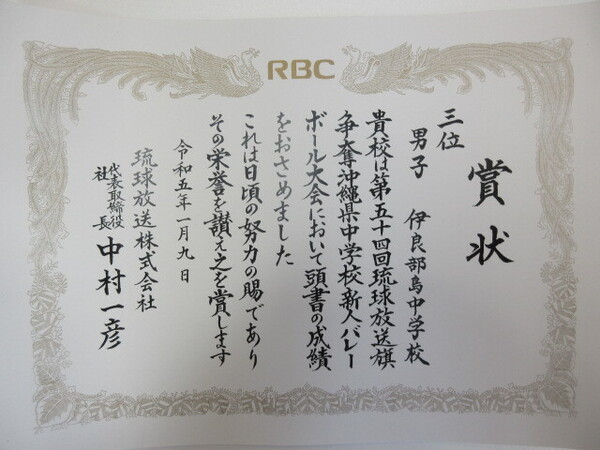 RBC
賞状
三位
男子 伊良部島中学校
貴校は第五十四回琉球放送旗
争奪沖縄県中学校新人バレー
ボール大会において頭書の成績
をおさめました
これは日頃の努力の賜であり
その栄誉を讃え之を賞します
令和五年一月九日
琉球放送株式会社
代表取締役
社長 中村一彦